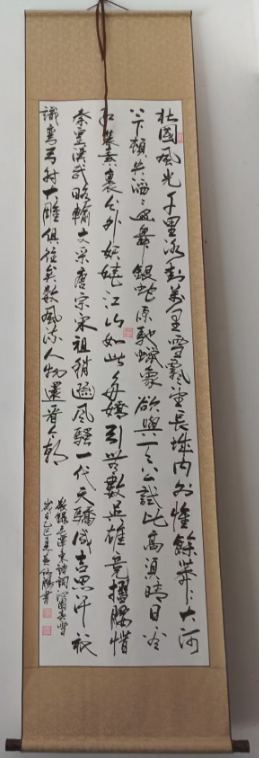 北國風光千里冰封萬里雪飄望长城内外惟餘莽莽大河
上下頓失滔滔山舞銀蛇原馳蠟象欲與天公試比高須晴日看
红装素裹分外妖娆江山如此多嬌引無數英雄竞折腰惜
秦皇漢武略輸文采唐宗宋祖稍遜風騷一代天驕成吉思汗祇
識彎弓射大雕俱往矣數風流人物還看今朝
敬錄毛澤東詩詞沁園春雪
歲在乙巳書